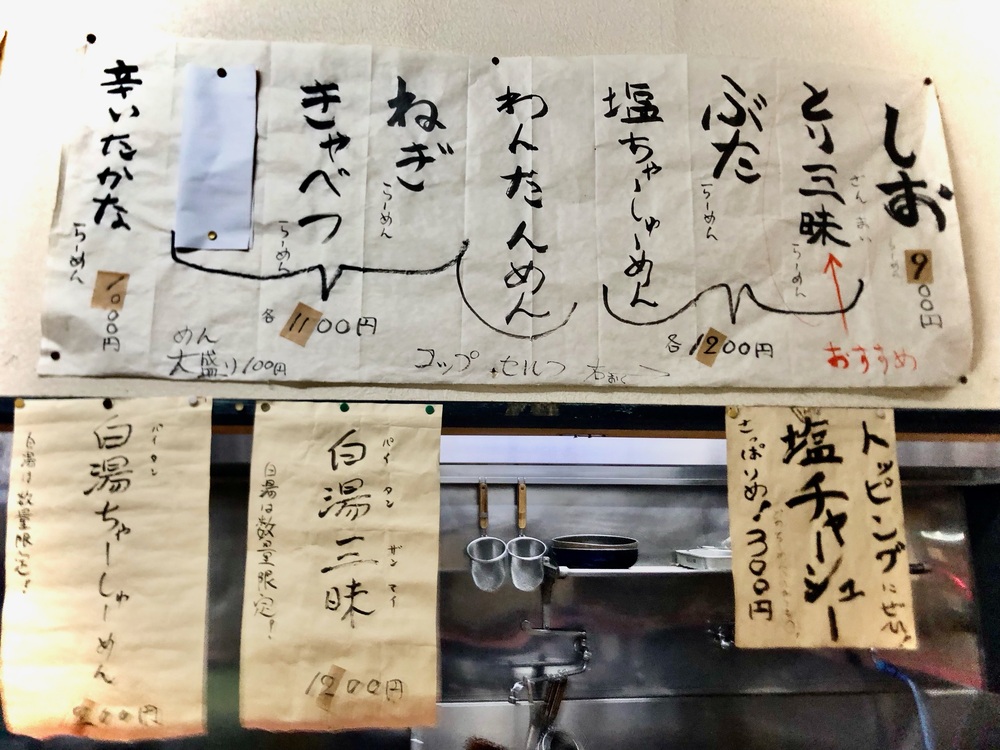 しお
らーめん
900円
とり三昧
ざんまい
らーめん
おすすめ
ぶた
らーめん
塩ちゃーしゅーめん
各1200円
わんたんめん
ねぎ
らーめん
きゃべつ
らーめん
各1100円
辛いたかな
らーめん
1000円
めん
大盛り100円
コップ セルフ
トッピングにぜひ!
塩チャーシュー
さっぱりめ!300円
白湯三昧
パイタンザンマイ
白湯は数量限定!
1200円
白湯ちゃーしゅーめん
パイタン
白湯は数量限定!